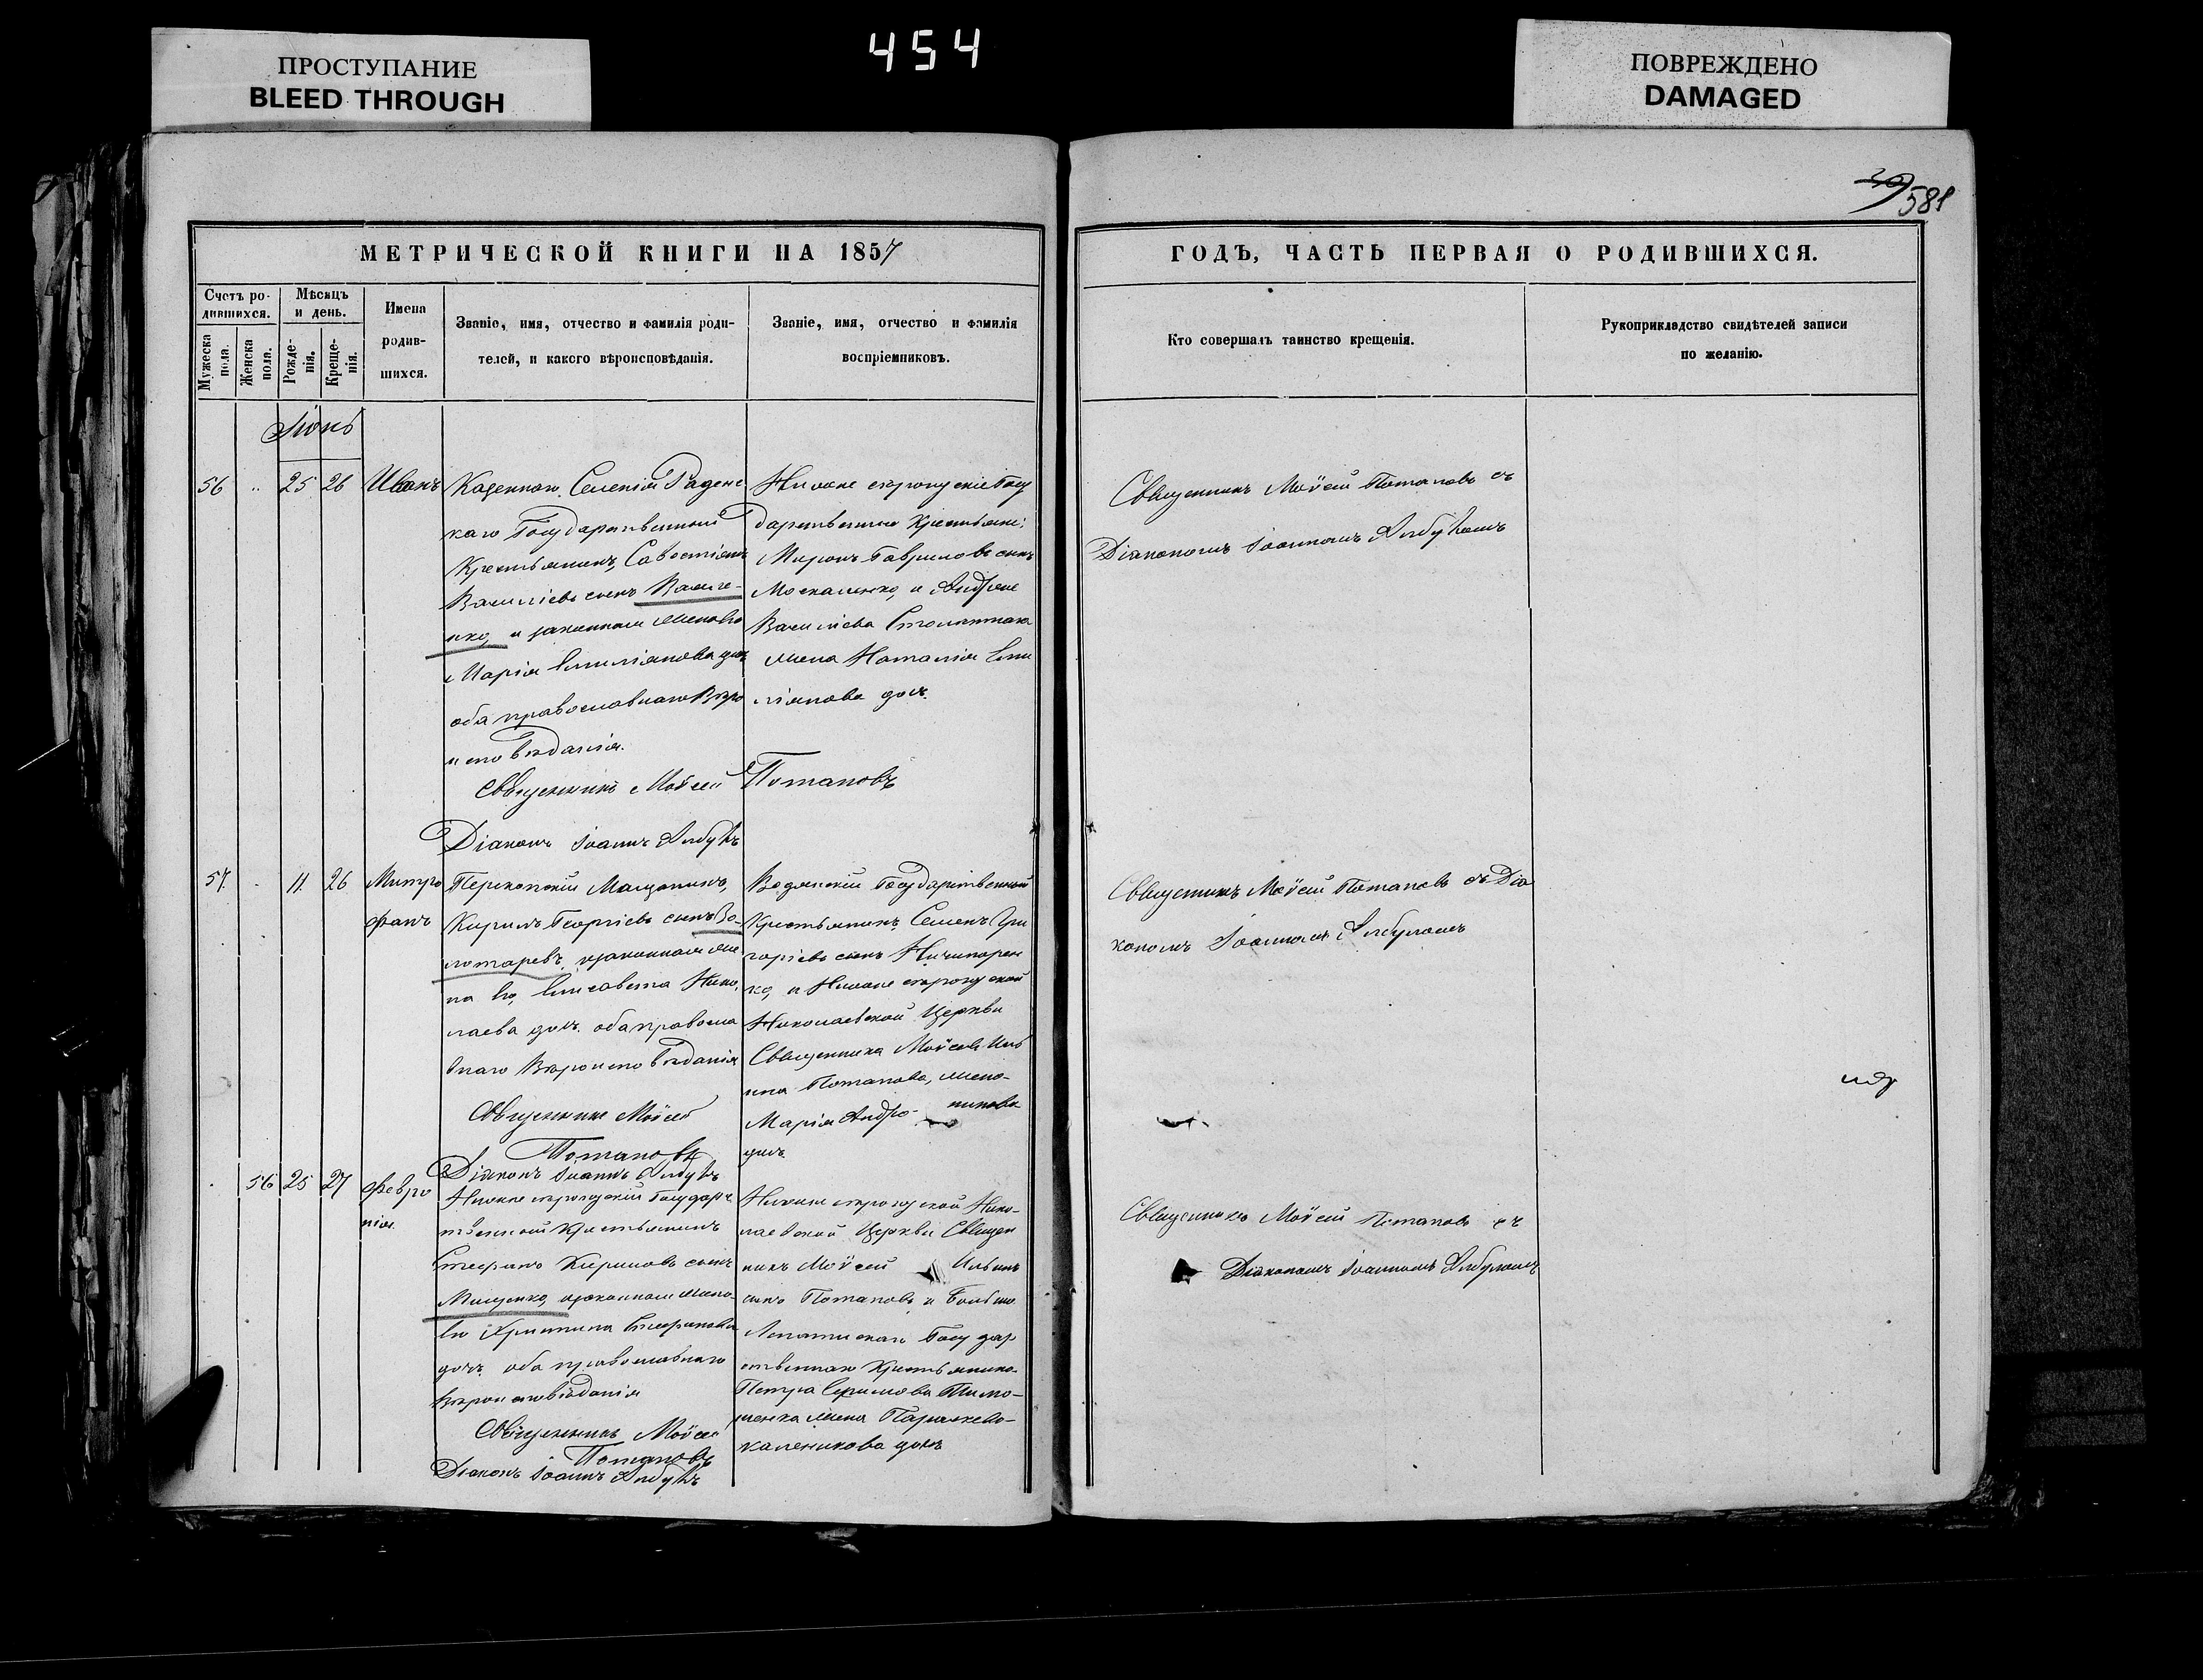 454
ПРОСТУПАНИЕ
BLEED THROUGH
ПОВРЕЖДЕНО
DAMAGED
581
МЕТРИЧЕСКОЙ КНИГИ НА 1857
Счетъ ро-
дившихся.
Мужеска
пола.
Женска
пола.
Мѣсяцъ
и день.
Рожде-
нія.
Креще-
нія.
Имена
родив-
шихся.
Званіе, имя, отчество и фамилія роди-
телей, и какого вѣроисповѣданія.
Званіе, имя, отчество и фамилія
воспріемниковъ.
ГОДЪ, ЧАСТЬ ПЕРВАЯ О РОДИВШИХСЯ.
Кто совершалъ таинство крещенія.
Рукоприкладство свидѣтелей записи
по желанію.
Іюнь
56 .. 25 26 Иванъ
Казеннаго Селенія Раденс
каго Государственный
Крестьянинъ, Савостіянъ
Василіевъ сынъ
и законная жена его
Марія Емиліянова доч.
оба православнаго Вѣро
исповѣданія.
Священникъ Моѵсей Потаповъ
Діаконъ Іоаннъ
Госу
дарственные Крестьяне:
Миронъ Гавриловъ сынъ
Москаленко, и Андрея
Василіева
жена Наталія Еми
ліянова доч.
Священникъ Моѵсей Потаповъ съ
Діакономъ Іоанномъ
57. . 11 26 Митро
фанъ
Перекопскій Мѣщанинъ,
Кирилъ Георгіевъ сынъ Зо-
лотаревъ, и законная же
на его, Елисавета Нико,
лаева доч. оба правосла
внаго Вѣроисповѣданія
Священникъ Моѵсей
Потаповъ
Діаконъ Іоаннъ
Государственный
Крестьянинъ, Семенъ Гри
горіевъ сынъ Ничипорен
ко, и
Николаевской Церкви
Священника Моѵсея Иль
ина Потапова, жена-
Марія Андро- никова
доч.
Священникъ Моѵсей Потаповъ съ Діа
кономъ Іоанномъ
. 56 25 27 Февро
нія.
Государс
твенный Крестьянинъ
Стефанъ Кириловъ сынъ
Мищенко, и законная жена
его Христина Стефанова
доч. оба православнаго
Вѣроисповѣданія
Священникъ Моѵсей
Потаповъ
Діаконъ Іоаннъ
Нико-
лаевской Церкви Священ
никъ Моѵсей Ильинъ
сынъ Потаповъ, и Больше
Лепатискаго Госу дар
ственнаго Крестьянина
Петра Тимо-
шенка жена Параскева-
каленикова доч.
Священникъ Моѵсей Потаповъ съ
Діакономъ Іоанномъ